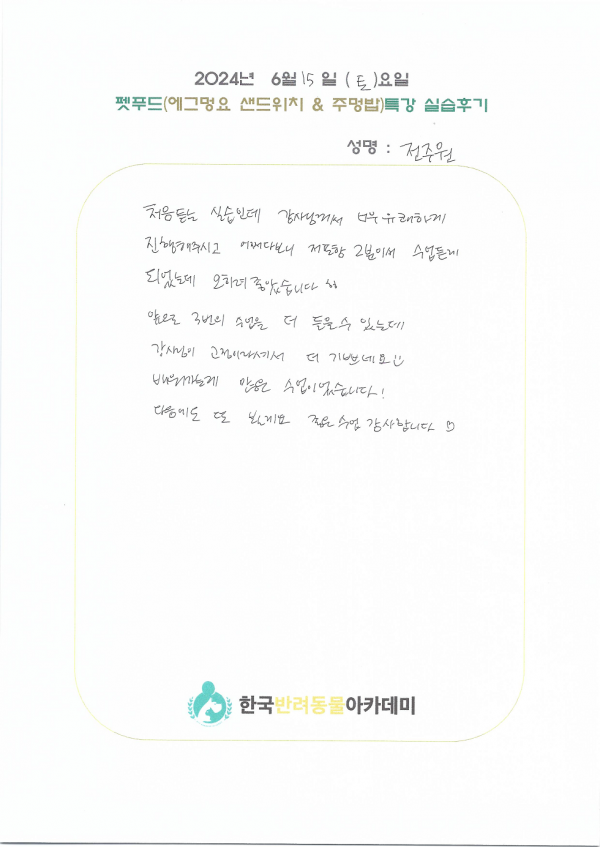 2024년 6월 15일 (토)요일
펫푸드(에그멍요 샌드위치 & 주멍밥)특강 실습후기
성명 : 전주원
처음듣는 실습인데 강사님께서 너무 유쾌하게
진행해주시고 어쩌다보니 저포함 2분이서 수업듣게
되었는데 오히려 좋았습니다 ㅎㅎ
앞으로 3번의 수업을 더 들을 수 있는데
강사님이 고정이라셔서 더 기쁘네요
배워가는게 많은 수업이었습니다!
다음에도 또 뵐게요 좋은 수업 감사합니다
한국반려동물아카데미